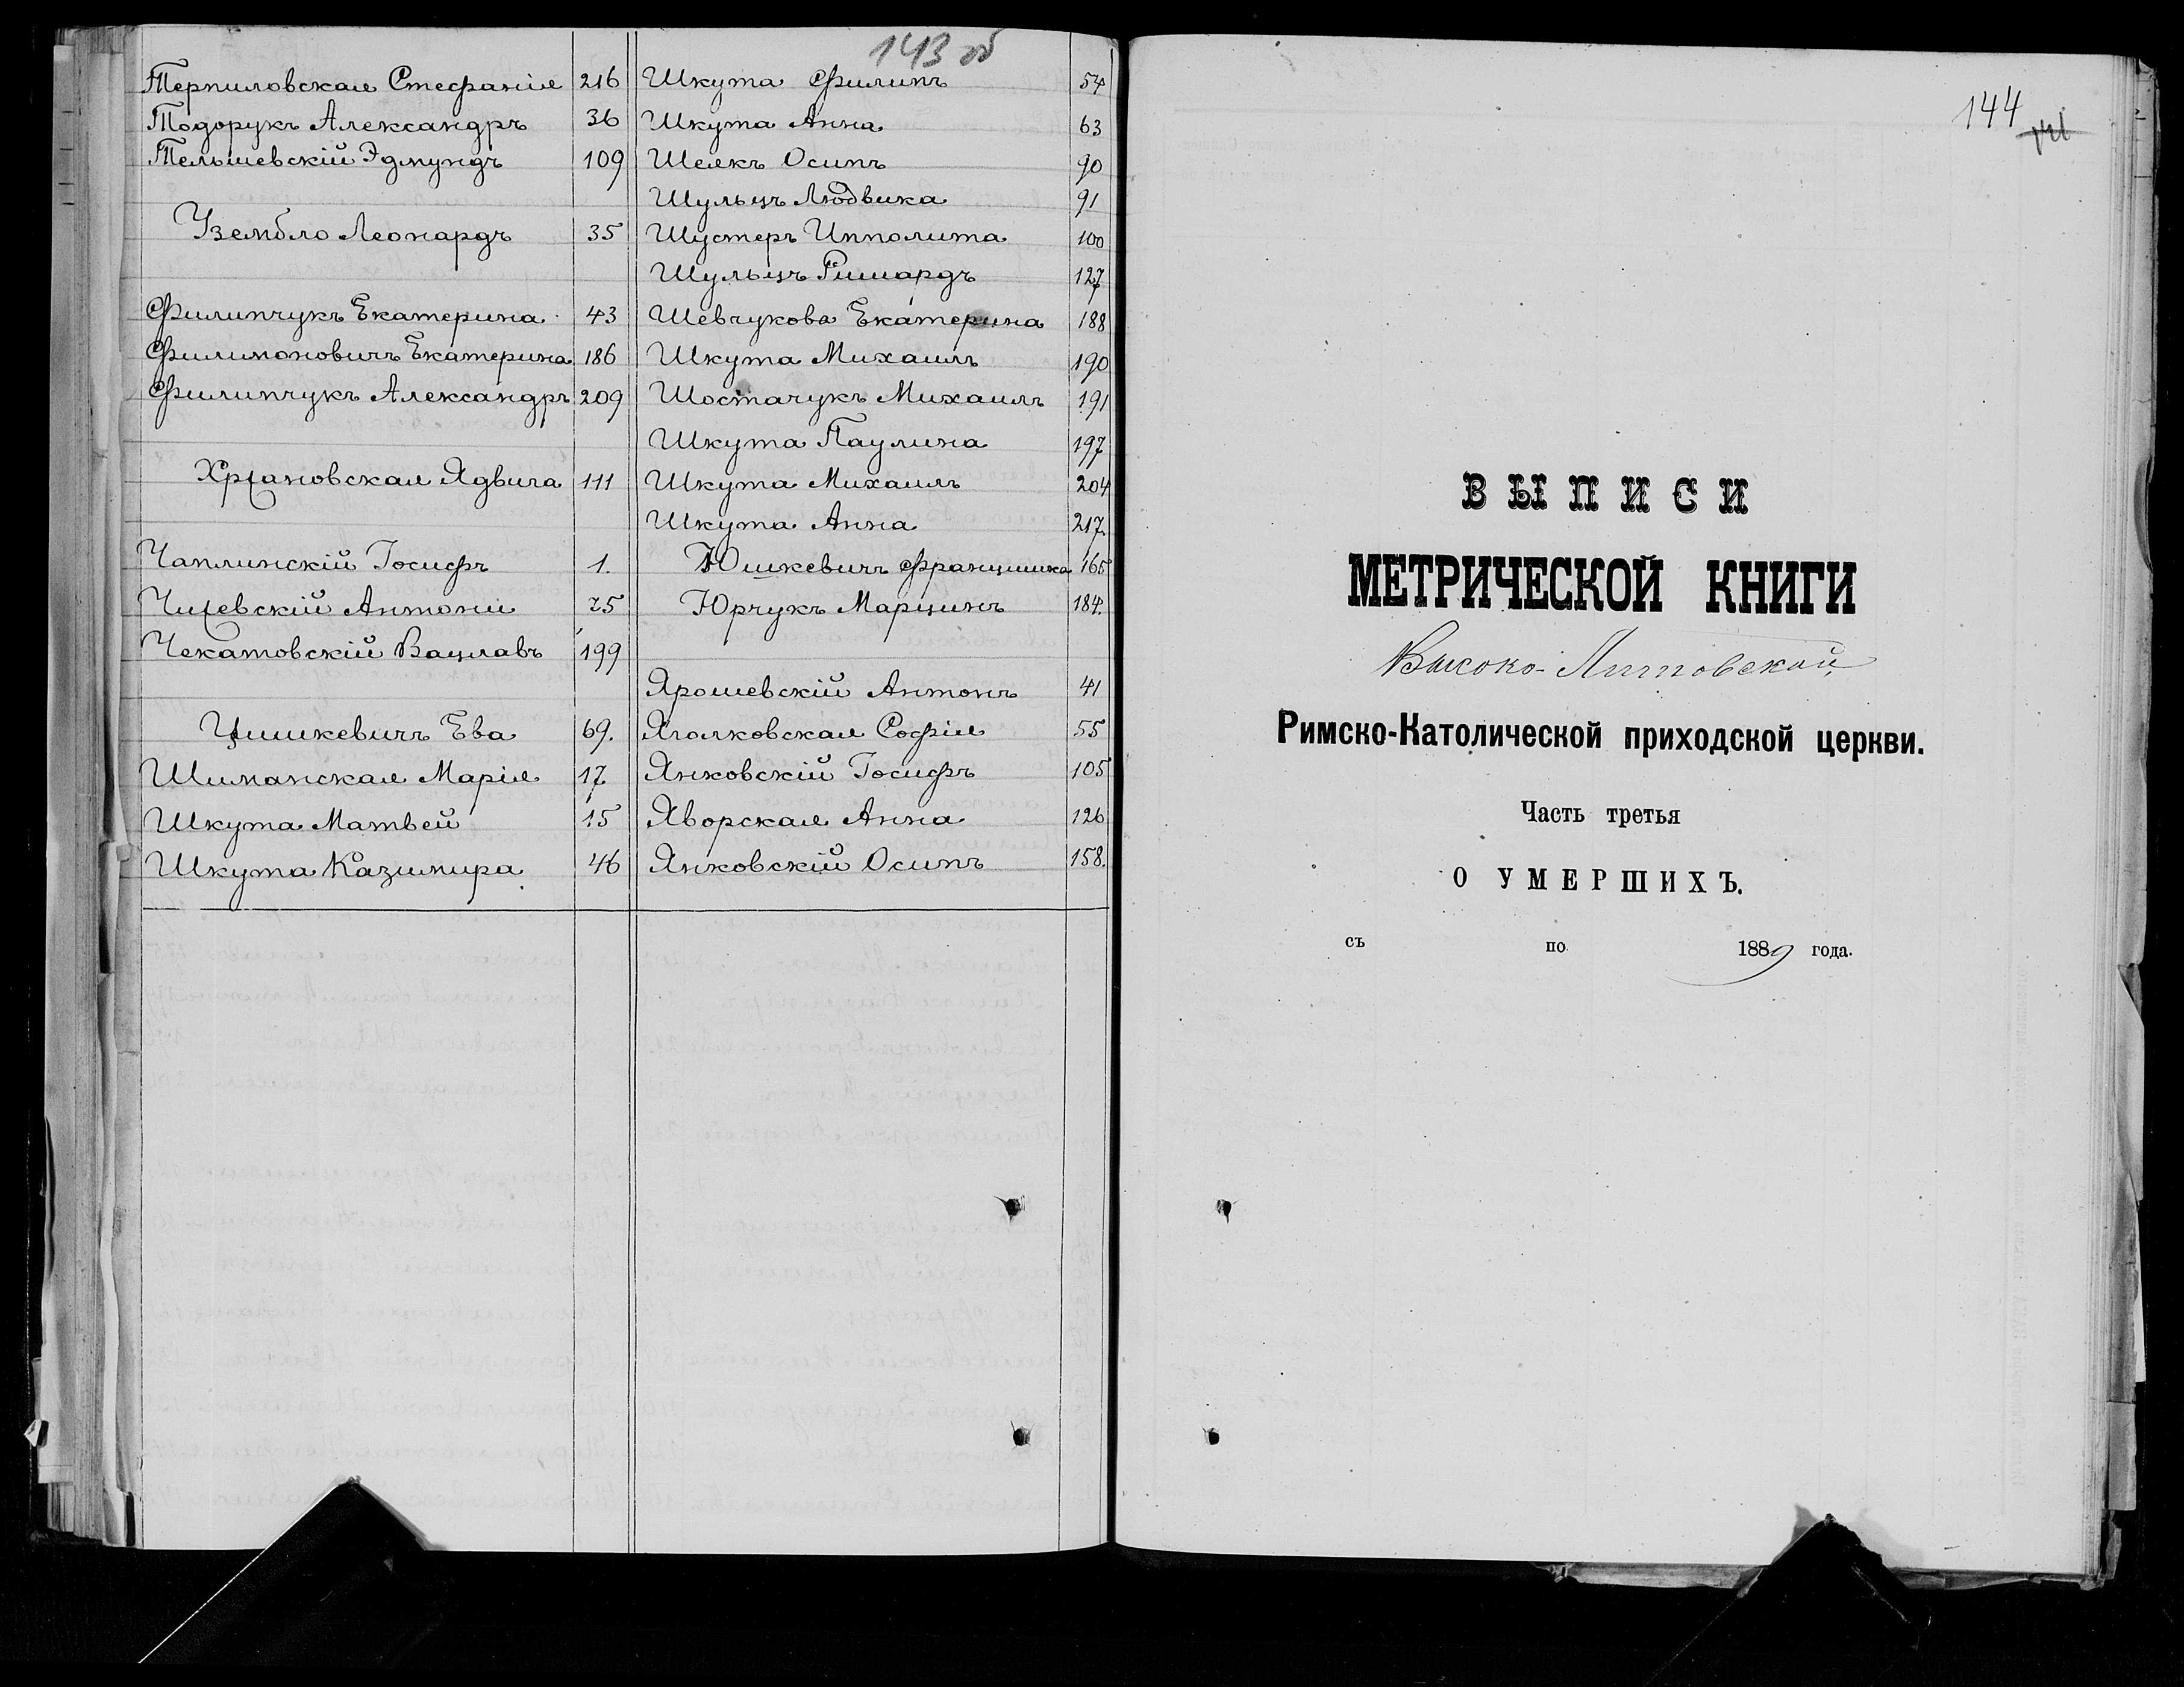 143 об
Терпиловская Стефанія 216
Тодорукъ Александръ 36
Тельшевскій Эдмундъ 109
Узембло Леонардъ 35
Филипчукъ Екатерина 43
Филимоновичъ Екатерина 186
Филипчукъ Александръ 209
Хрзановская Ядвига 111
Чаплинскій Іосифъ 1.
Чижевскій Антоній 25
Чекатовскій Вацлавъ 199
Цишкевичъ Ева 69.
Шиманская Марія 17
Шкута Матвей 15
Шкута Казимира 46
Шкута Филипъ 54
Шкута Анна 63
Шеякъ Осипъ 90
Шульцъ Людвика 91
Шустеръ Ипполита 100
Шульцъ Ришардъ 127
Шевчукова Екатерина 188
Шкута Михаилъ 190
Шостачукъ Михаилъ 191
Шкута Паулина 197
Шкута Михаилъ 204
Шкута Анна 217.
Юшкевичъ Францишка 165
Юрчукъ Марцинъ 184.
Ярошевскій Антонъ 41
Яголковская Софія 55
Янковскій Іосифъ 105
Яворская Анна 126
Янковскій Осипъ 158.
144
ВЫПИСИ
МЕТРИЧЕСКОЙ КНИГИ
Высоко-Литовской
Римско-Католической приходской церкви.
Часть третья
О УМЕРШИХЪ.
съ по 1889 года.